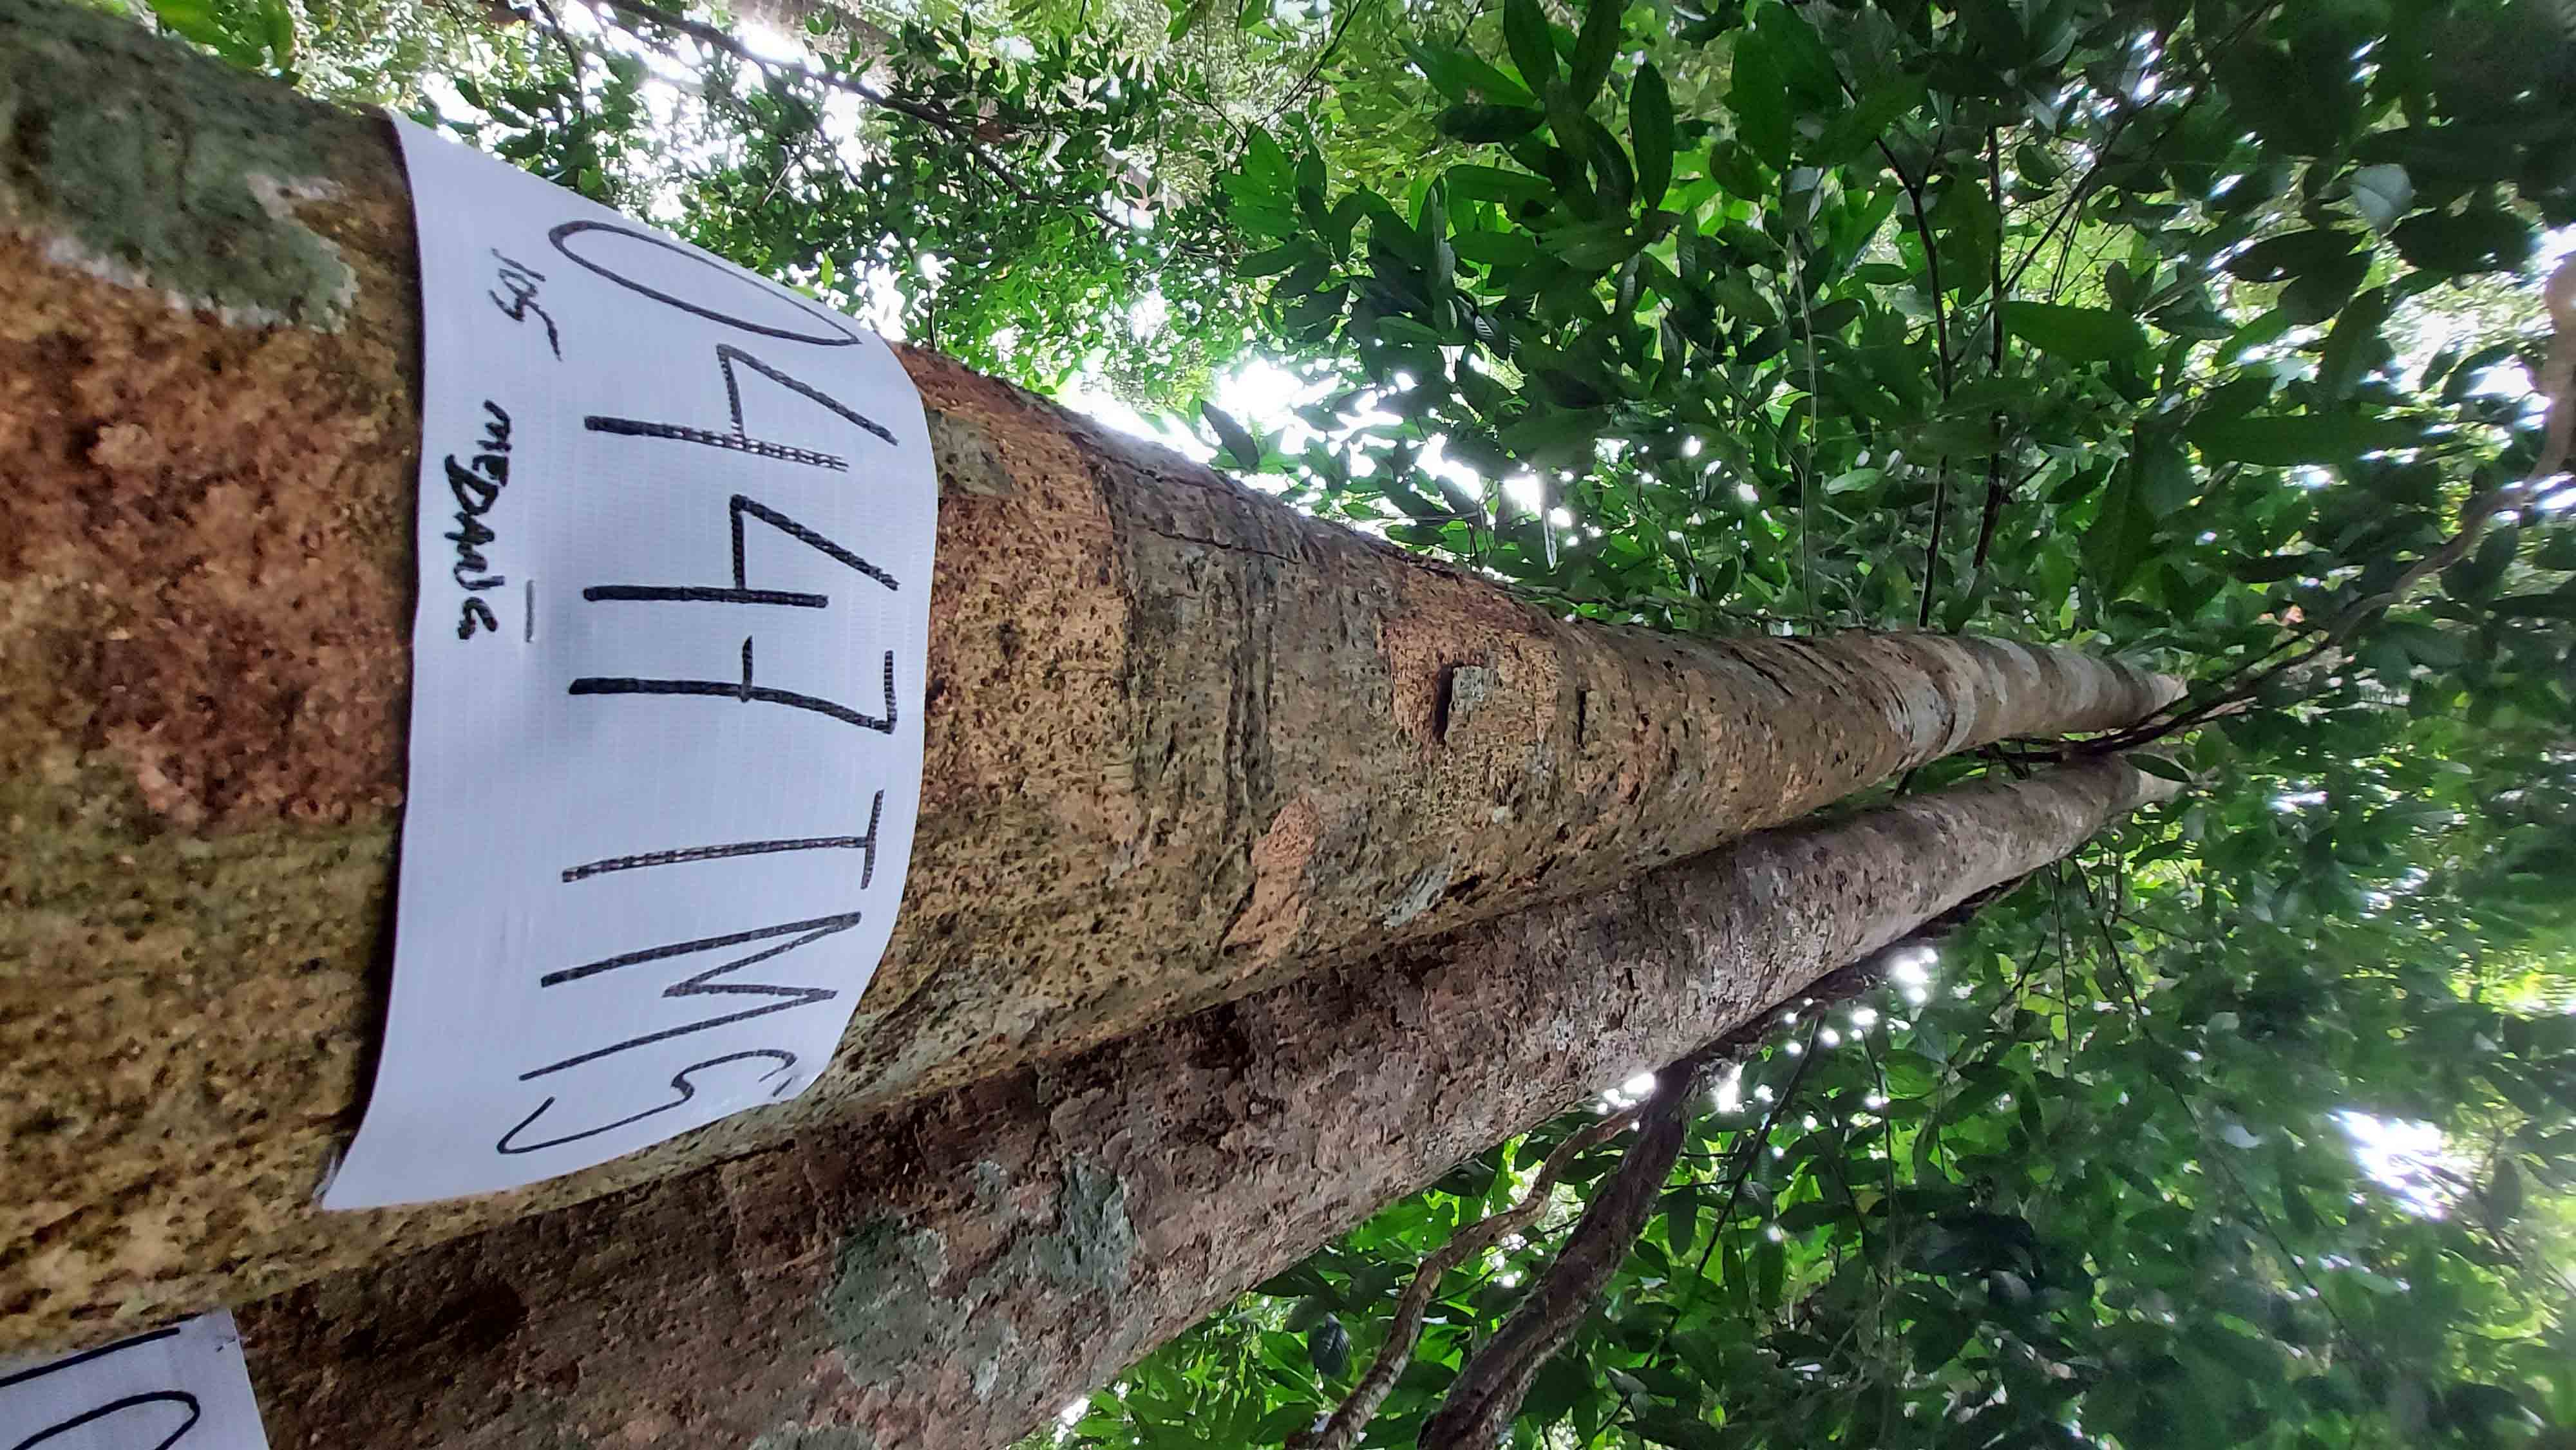 0447TMG
105 MEDANG